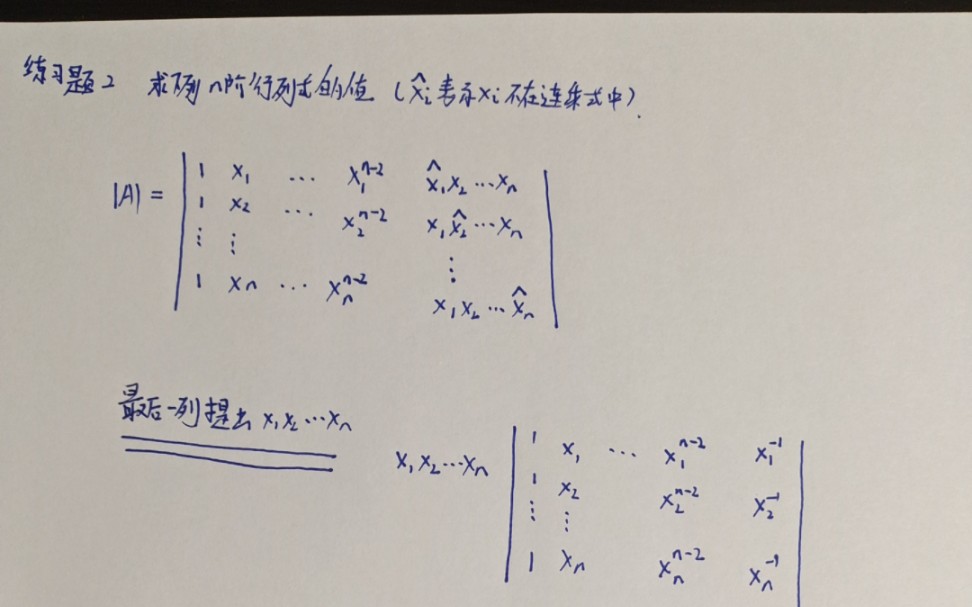 练习题2 求下列n阶行列式的值 (x̂ᵢ表示xᵢ不在连乘式中).
|A| =
1 x₁ ⋯ x₁ⁿ⁻² x̂₁x₂⋯xₙ
1 x₂ ⋯ x₂ⁿ⁻² x₁x̂₂⋯xₙ
⋮ ⋮ ⋮
1 xₙ ⋯ xₙⁿ⁻² x₁x₂⋯x̂ₙ
最后一列提出 x₁x₂⋯xₙ
x₁x₂⋯xₙ
1 x₁ ⋯ x₁ⁿ⁻² x₁⁻¹
1 x₂ x₂ⁿ⁻² x₂⁻¹
⋮ ⋮
1 xₙ xₙⁿ⁻² xₙ⁻¹